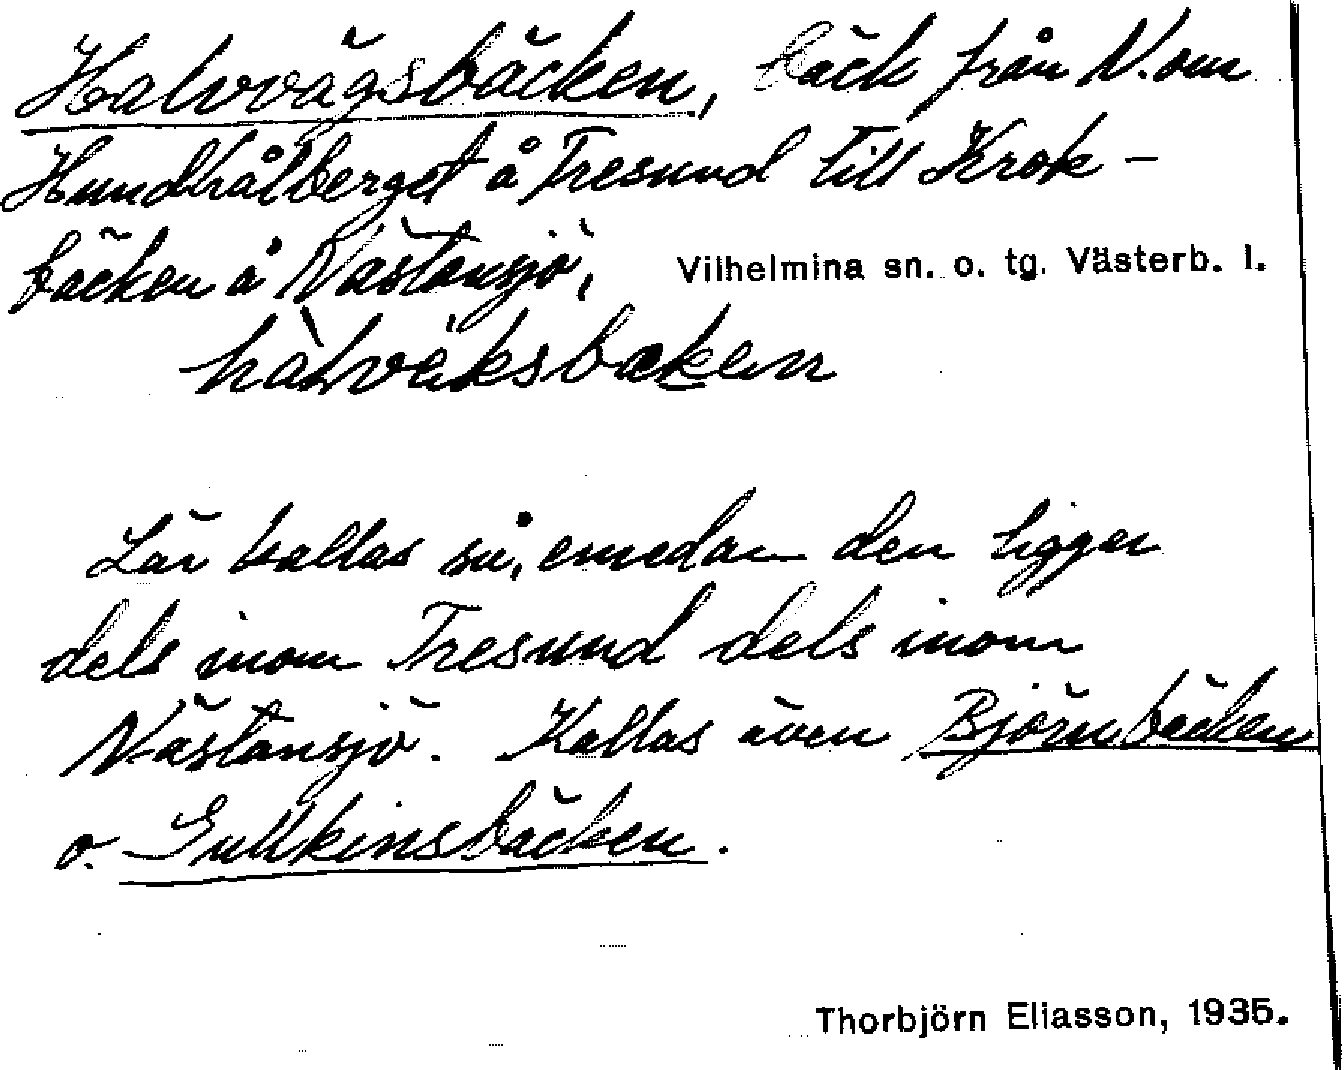 Halvvägsbäcken, bäck från N. om
Hundhålberget å Tresund till Krok-
bäcken å Västansjö, Vilhelmina sn. o. tg. Västerb. l.
Lär kallas så, emedan den ligger
dels inom Tresund dels inom
Västansjö. Kallas även Björnbäcken
o. Gullkinsbäcken.
Thorbjörn Eliasson, 1935.